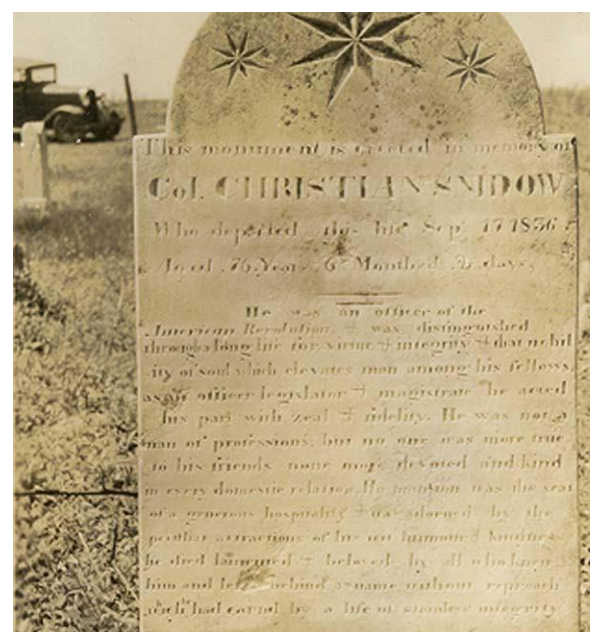 This monument is erected in memory of
Col. CHRISTIAN SNIDOW
Who departed this life Sep. 17 1836
Aged 76 Years 6 Months & days,
He was an officer of the
American Revolution, & was distinguished
through a long life for virtue & integrity & that nobil
ity of soul which elevates man among his fellows,
as an officer legislator & magistrate he acted
his part with zeal & fidelity. He was not a
man of professions; but no one was more true
to his friends none more devoted and kind
in every domestic relation. His mansion was the seat
of a generous hospitality & was adorned by the
peculiar attractions of his own humour & kindness
he died lamented & beloved by all who knew
him and left behind a name without reproach
which had earned by a life of stainless integrity